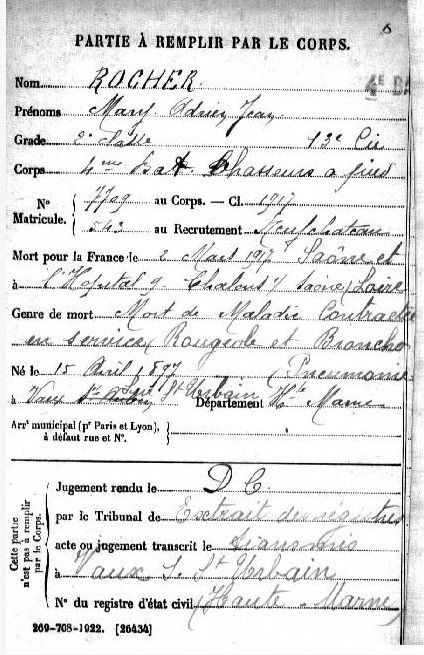 6
PARTIE À REMPLIR PAR LE CORPS.
Nom ROCHER
Prénoms Mary Adrien Jean
Grade 2e Classe 13e Cie
Corps 4me Bat. Chasseurs à pied
N° Matricule. { 7709 au Corps. — Cl. 1917
543 au Recrutement Neufchateau
Mort pour la France le 2 Mars 1917
à l'Hopital 9 Chalons s/ Saône (Saône et Loire
Genre de mort Mort de Maladie Contractée
en service, Rougeole et Broncho
Pneumonie
Né le 15 Avril 1897
à Vaux sur St Urbain Département Hte Marne
Arrt municipal (pr Paris et Lyon),
à défaut rue et N°.
Cette partie
n'est pas à remplir
par le Corps.
Jugement rendu le D C.
par le Tribunal de Extrait des registres
acte ou jugement transcrit le transmis
à Vaux s. St Urbain
N° du registre d'état civil (Haute-Marne)
269-708-1922. [26434]